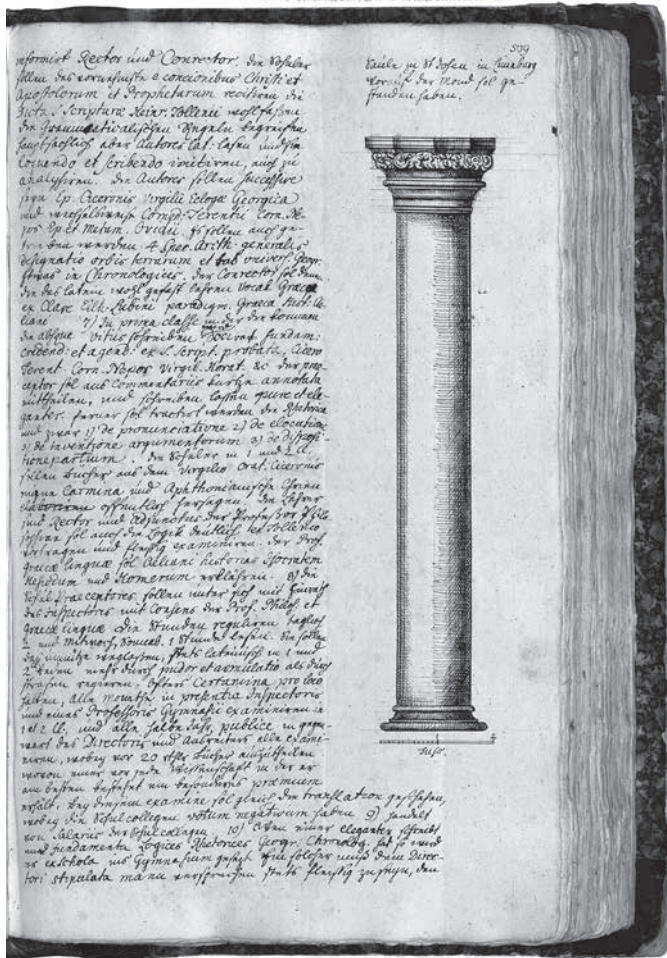 509
Säule zu St Dosen in Lüneburg
worauf der Mond sol ge-
standen haben.
informirt Rector und Conrector. die Schüler
sollen des vornehmste e concionibus Christi et
Apostolorum et Prophetarum recitiren die
Dicta S. Scripturæ Heinr. Tollenii wohl fassen
die Grammaticalischen Regeln begreifen
hauptsächlich aber Autores lat. lesen und in
Loquendo et scribendo imitiren, auch zu
analysiren. die Autores sollen successive
seyn Ep. Ciceronis Virgilii Ecloga Georgica
und wechselsweise Comoed. Terentii Corn. Ne-
pos Ep. et Metam. Ovidii. Es sollen auch ge-
trieben werden 4 Spec. Arith. generalis
designatio orbis terrarum et tab univers. Geogr.
Etwas in Chronologicis. der Conrector sol denen
die des latein wohl gefast lehren vocab. Græca
ex Clave Eilh. Lubini paradigm. Græca Hist. Æ-
liani 7) In prima classe in der die
die absque vitiis schreiben Dociret fundam:
credend: et agend: ex S. Script. probata, Cicero
Terent. Corn. Nepos Virgil. Horat. &c der præ-
ceptor sol aus Commentariis kurtze annotata
mittheilen, und schreiben lassen pure et ele-
ganter. ferner sol tractirt werden die Rhetorica
und zwar 1) de pronunciatione 2) de elocutione
3) de inventione argumentorum 3) de disposi-
tione partium. die Schüler in 1 und 2 cl.
sollen Bücher aus dem Virgilio Orat. Ciceronis
Carmina und Aphthonianische Chrien
elaboriren offentlich hersagen die Lehrer
sind Rector und Adjunctus der Professor Philo
sophiæ sol auch die Logik deutlich ex Tollenio
vortragen und fleissig examiniren. der Prof.
græcæ linguæ sol Æliani historias Isocratem
Hesiodum und Homerum erklähren. 8) die
Schul Præceptores sollen unter sich mit
des Inspectoris mit Consens der Prof. Philos. et
Græcæ linguæ die Stunden reguliren täglich
2 und Mittwoch, Sonnab. 1 Stunde lesen. Sie sollen
das unnütze weglassen, stets lateinisch in 1 und
2 reden mehr durch pudor et æmulatio als durch
straffen regieren. öffters Certamina pro loco
halten, alle Monathe in præsentia Inspectoris
und eines Professoris Gymnasii examiniren in
1 et 2 cl. und alle halbe Jahr, publice in gegen-
wart des Directoris und alle exami-
niren, wobey vor 20 rthlr Bücher auszutheilen
wovon einer vor jede Wissenschaft in der er
am besten bestehet ein besonders præmium
erhält. Bey diesem examine sol gleich die translation geschehen,
wobey die Schulcollegen votum negativum haben 9) handelt
von Salariis der Schulcollegen. 10) Wenn einer eleganter schreibt
und fundamenta Logices Rhetorices Geogr. Chronolog. hat so wird
er ex schola ins Gymnasium gesetzt ein solcher muss dem Direc-
tori stipulata manu versprechen stets fleissig zu seyn, den
fuss.